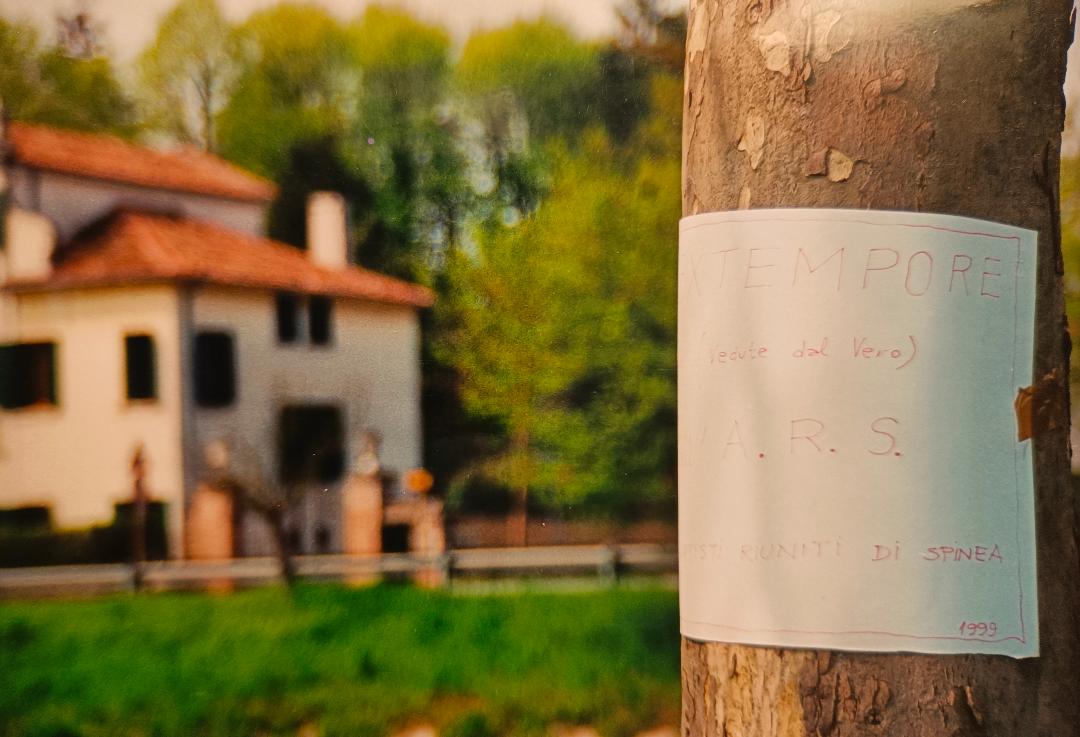 XTEMPORE
(Vedute dal Vero)
A. R. S.
RIUNITI DI SPINEA
1999